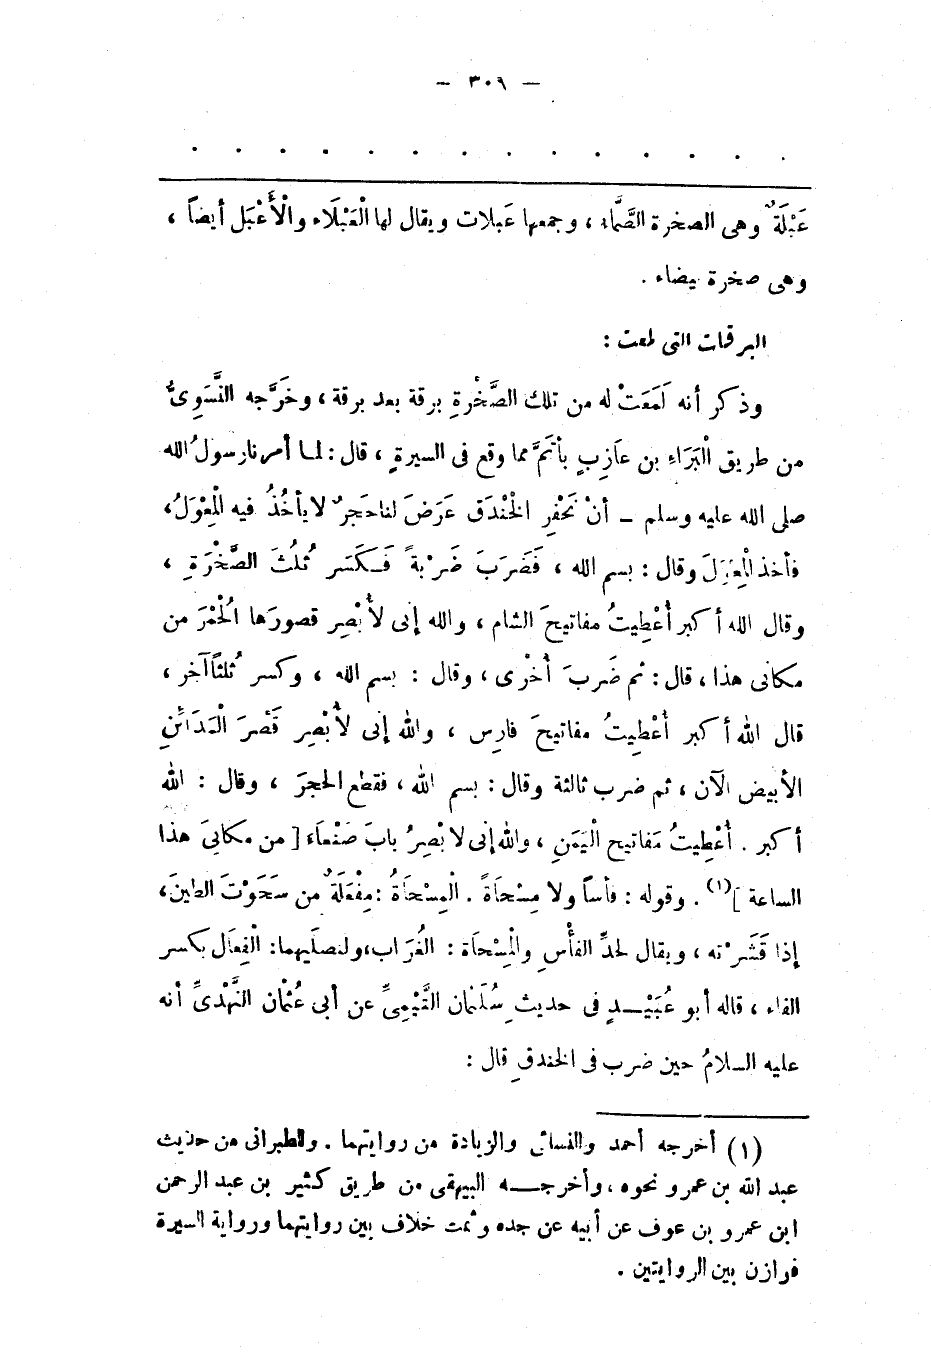 — ٣٠٦ —
. . . . . . . . . . . . . .
عَبْلَةٌ وهى الصخرة الصَّمَّاء ، وجمعها عَبلات ويقال لها الْعَبْلَاء والْأَعْبَل أيضاً ،
وهى صخرة بيضاء .
البرقات التى لمعت :
وذكر أنه لَمَعَتْ له من تلك الصَّخْرةِ برقة بعد برقة ، وخَرَّجه النَّسَوِىُّ
من طريق الْبَرَاءِ بن عَازِبٍ بأَتَمَّ مما وقع فى السيرةِ ، قال : لما أمرنا رسولُ الله
صلى الله عليه وسلم – أنْ نَحْفِر الخنْدَق عَرَضَ لنا حَجرٌ لا يأخُذُ فيه الْمِعْوَلُ،
فأخذ الْمِعْوَلَ وقال : بسم الله ، فَضَرَبَ ضَرْبةً فَكَسَر ثُلُثَ الصَّخْرَةِ ،
وقال الله أكبر أُعْطِيتُ مفاتيحَ الشام ، والله إنى لأُبْصِر قصورَها الْحُمْرَ من
مكانى هذا ، قال : ثم ضَربَ أُخْرى ، وقال : بسم الله ، وكسر ثُلثاً آخر ،
قال الله أكبر أُعْطِيتُ مفاتيحَ فارِس ، والله إنى لأُبْصِر قَصْرَ الْمَدَائِنِ
الأبيض الآن ، ثم ضرب ثالثة وقال : بسم الله ، فقطع الحجرَ ، وقال : الله
أكبر . أُعْطِيتُ مَفاتيح الْيَمَنِ ، والله إنى لأبْصِرُ بابَ صَنْعَاءَ [ من مكانِىَ هذا
الساعة ](١) . وقوله : فأساً ولا مِسْحَاةً . الْمِسْحَاةُ : مِفْعَلَةٌ من سَحَوْتَ الطينَ،
إذا قَشَرْته ، ويقال لحدِّ الفأْسِ والْمِسْحَاة : الغُرَاب، ولنصلَيهما: الْفِعَال بكسر
الفاء ، قاله أبو عُبَيْدٍ فى حديث سُلَيْمان التَّيْمِىِّ عن أبى عُثْمان النَّهْدىِّ أنه
عليه السلامُ حين ضرب فى الخندقِ قال :
(١) أخرجه أحمد والنسائى والزيادة من روايتهما . والطبرانى من حديث
عبد الله بن عمرو نحوه ، وأخرجه البيهقى من طريق كثير بن عبد الرحمن
ابن عمرو بن عوف عن أبيه عن جده وثمت خلاف بين روايتهما ورواية السيرة
فوازن بين الروايتين .